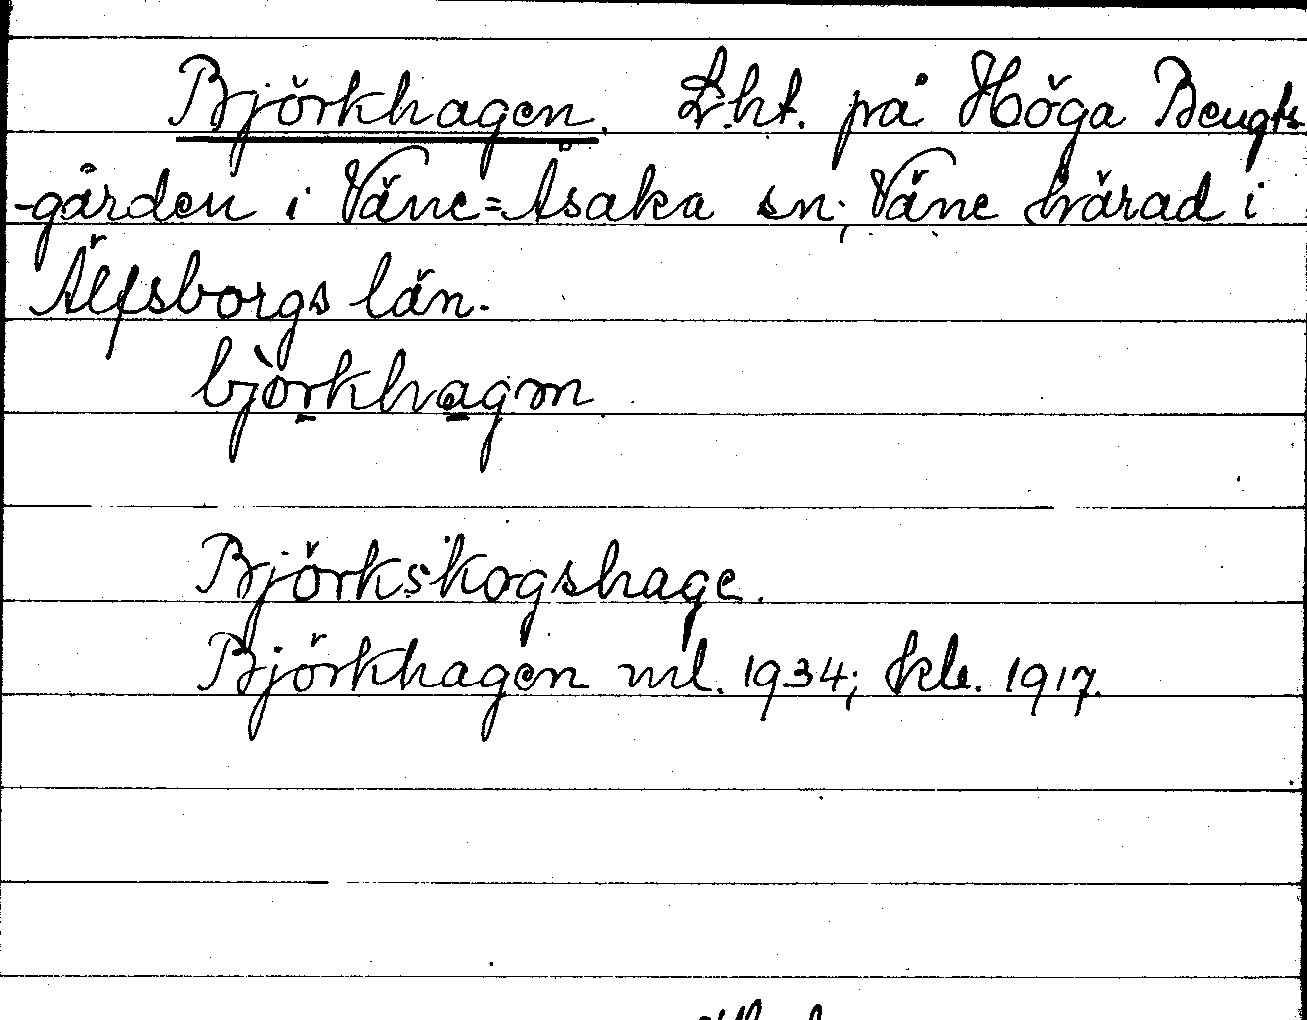 Björkhagen. L.ht. på Höga Bengts
-gården i Väne=Åsaka sn; Väne härad i
Älfsborgs län.
bjòrkhagm
Björkskogshage.
Björkhagen ml. 1934; kle. 1917.